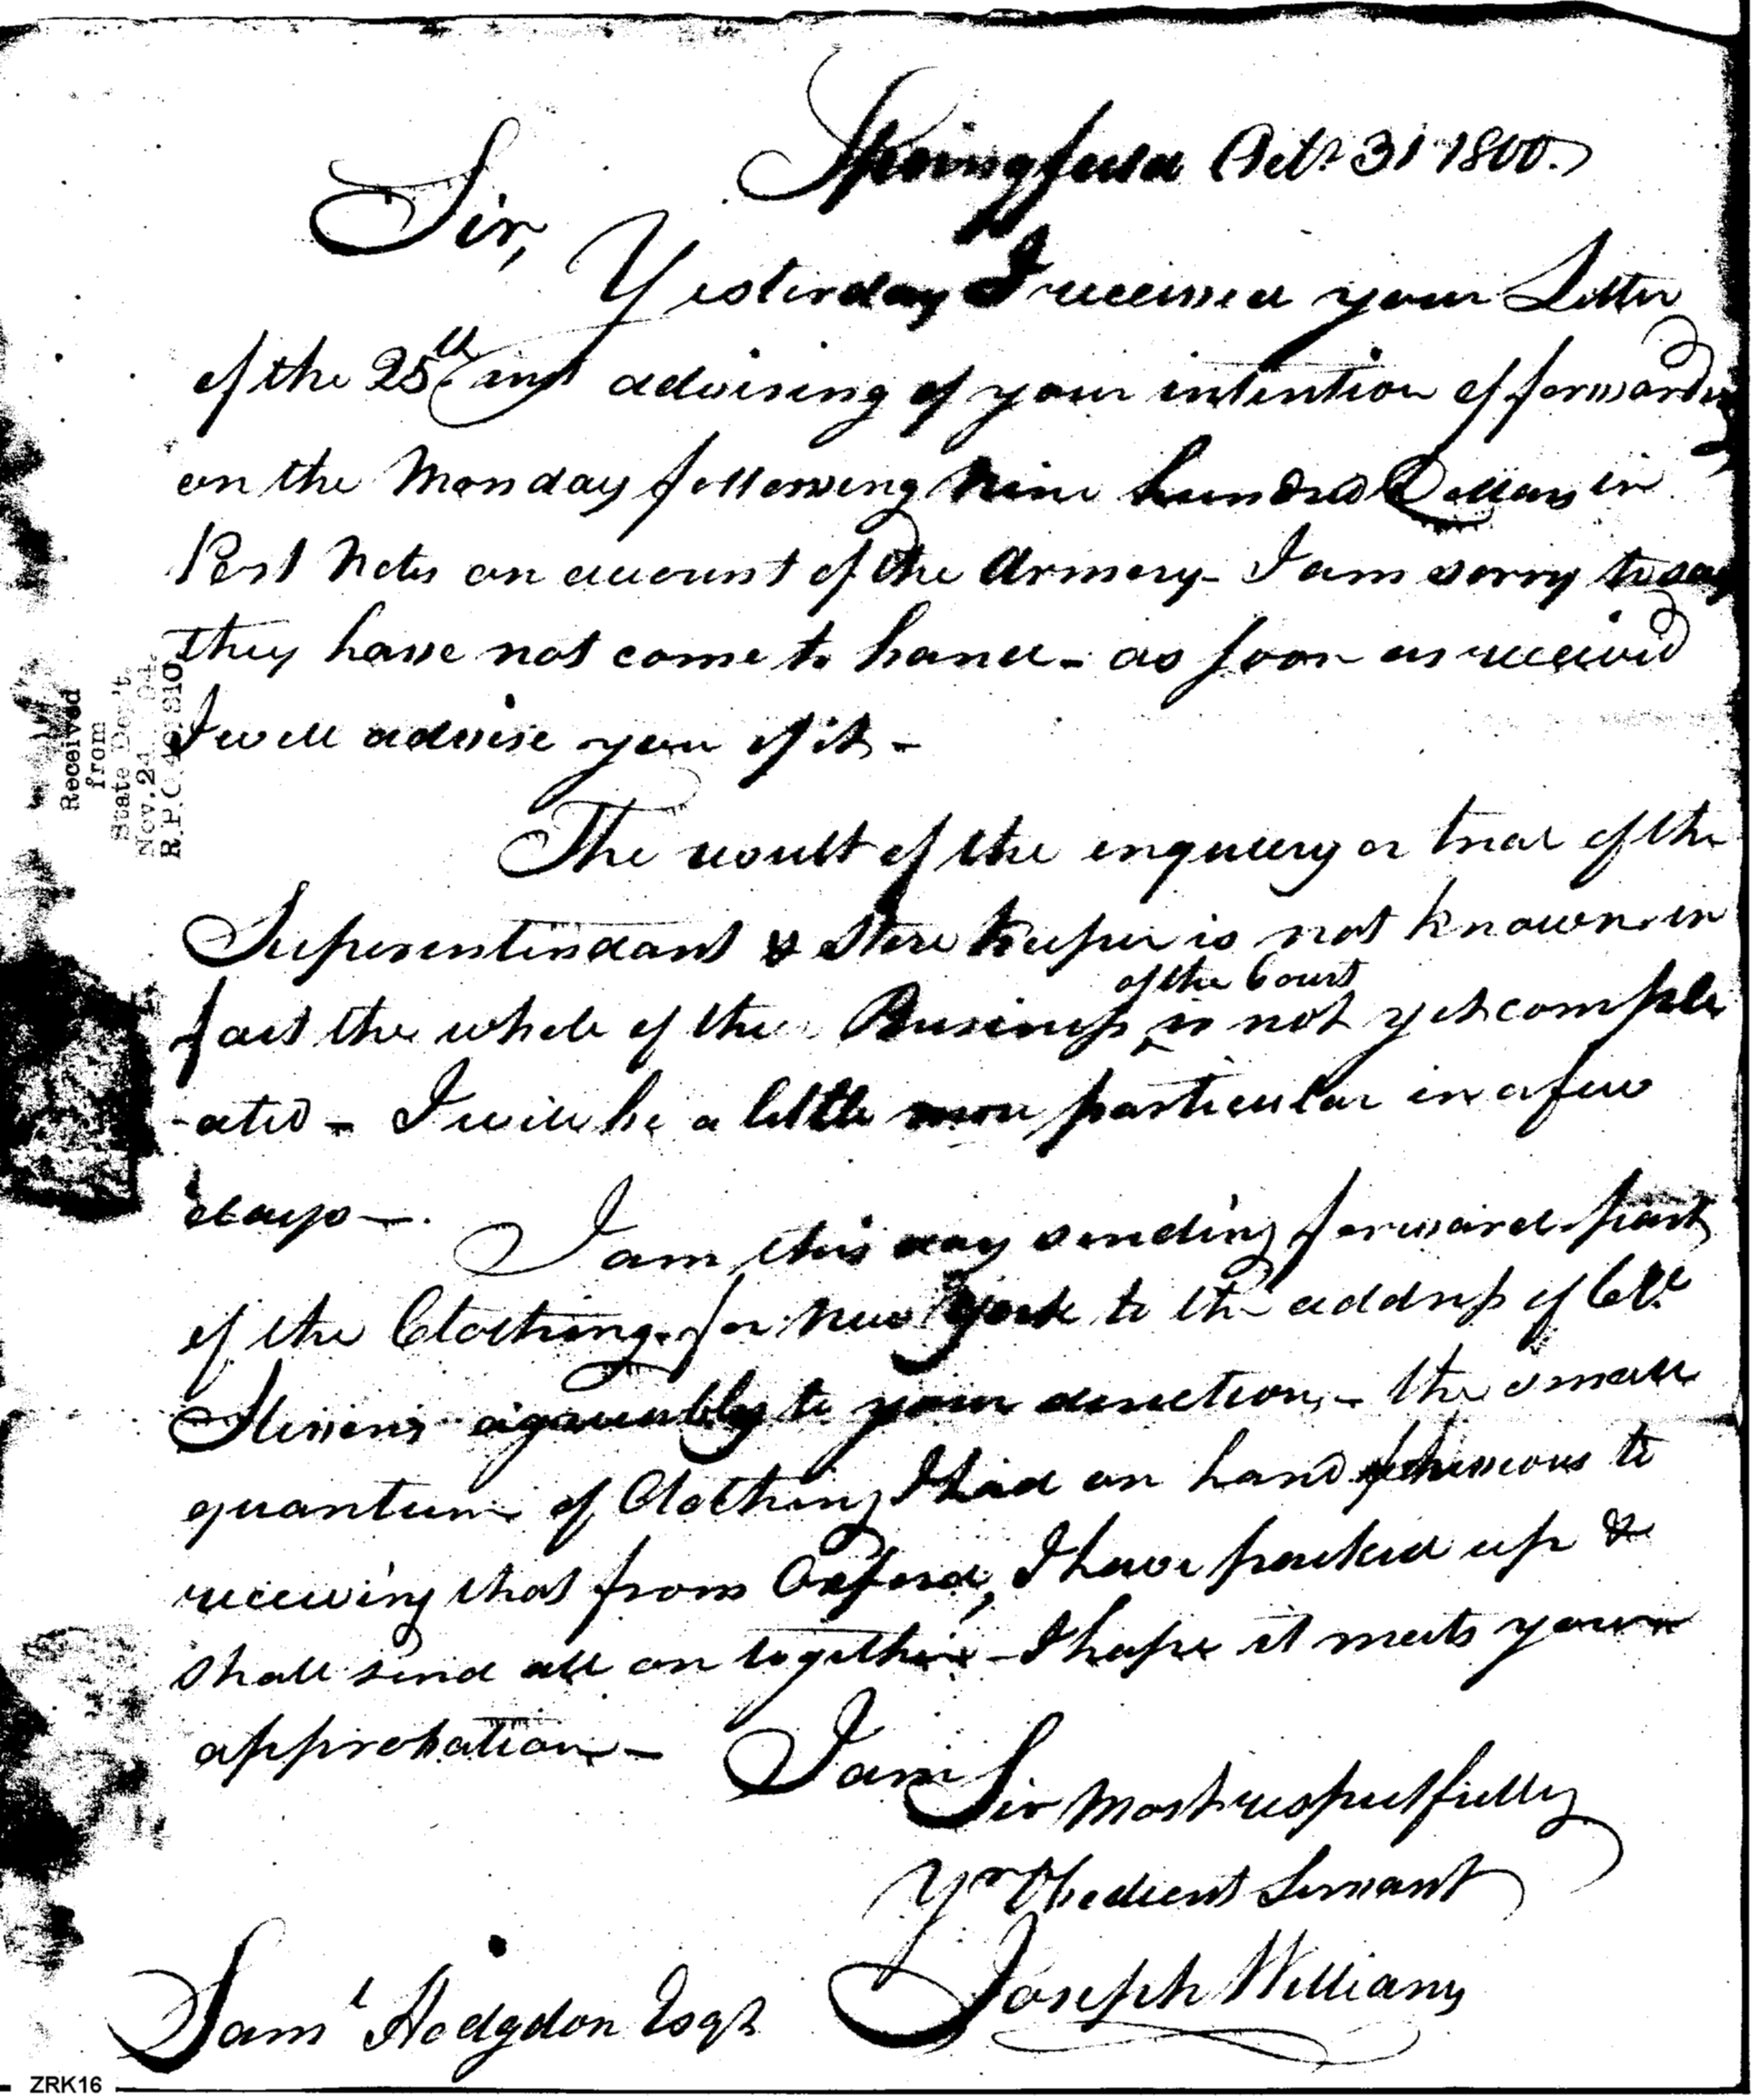 Springfield Octr 31 1800.
Sir,
Yesterday I received your Letter
of the 25th inst advising of your intention of forwarding
on the Monday following Nine hundred Dollars in
Post Notes on account of the Armory - I am sorry to say
they have not come to hand - as soon as received
I will advise you of it -
The result of the enquiery or trial of the
Superintendant & Store keeper is not known in
of the Court
fact the whole of the Business is not yet comple
-ated - I will be a little more particular in a few
days -.
I am this day sending forward part
of the Clothing for New York to the address of Col.
Stevens agreeably to your direction, - the small
quantum of Clothing I had on hand previous to
receiving that from Oxford, I have packed up &
shall send all on together - I hope it meets your
approbation -
I am
Sir Most respectfully
Yr Obedient Servant
Joseph Williams
Saml Hodgdon Esqr
Received
from
State Dep't.
Nov. 24
R.P.O.
ZRK16